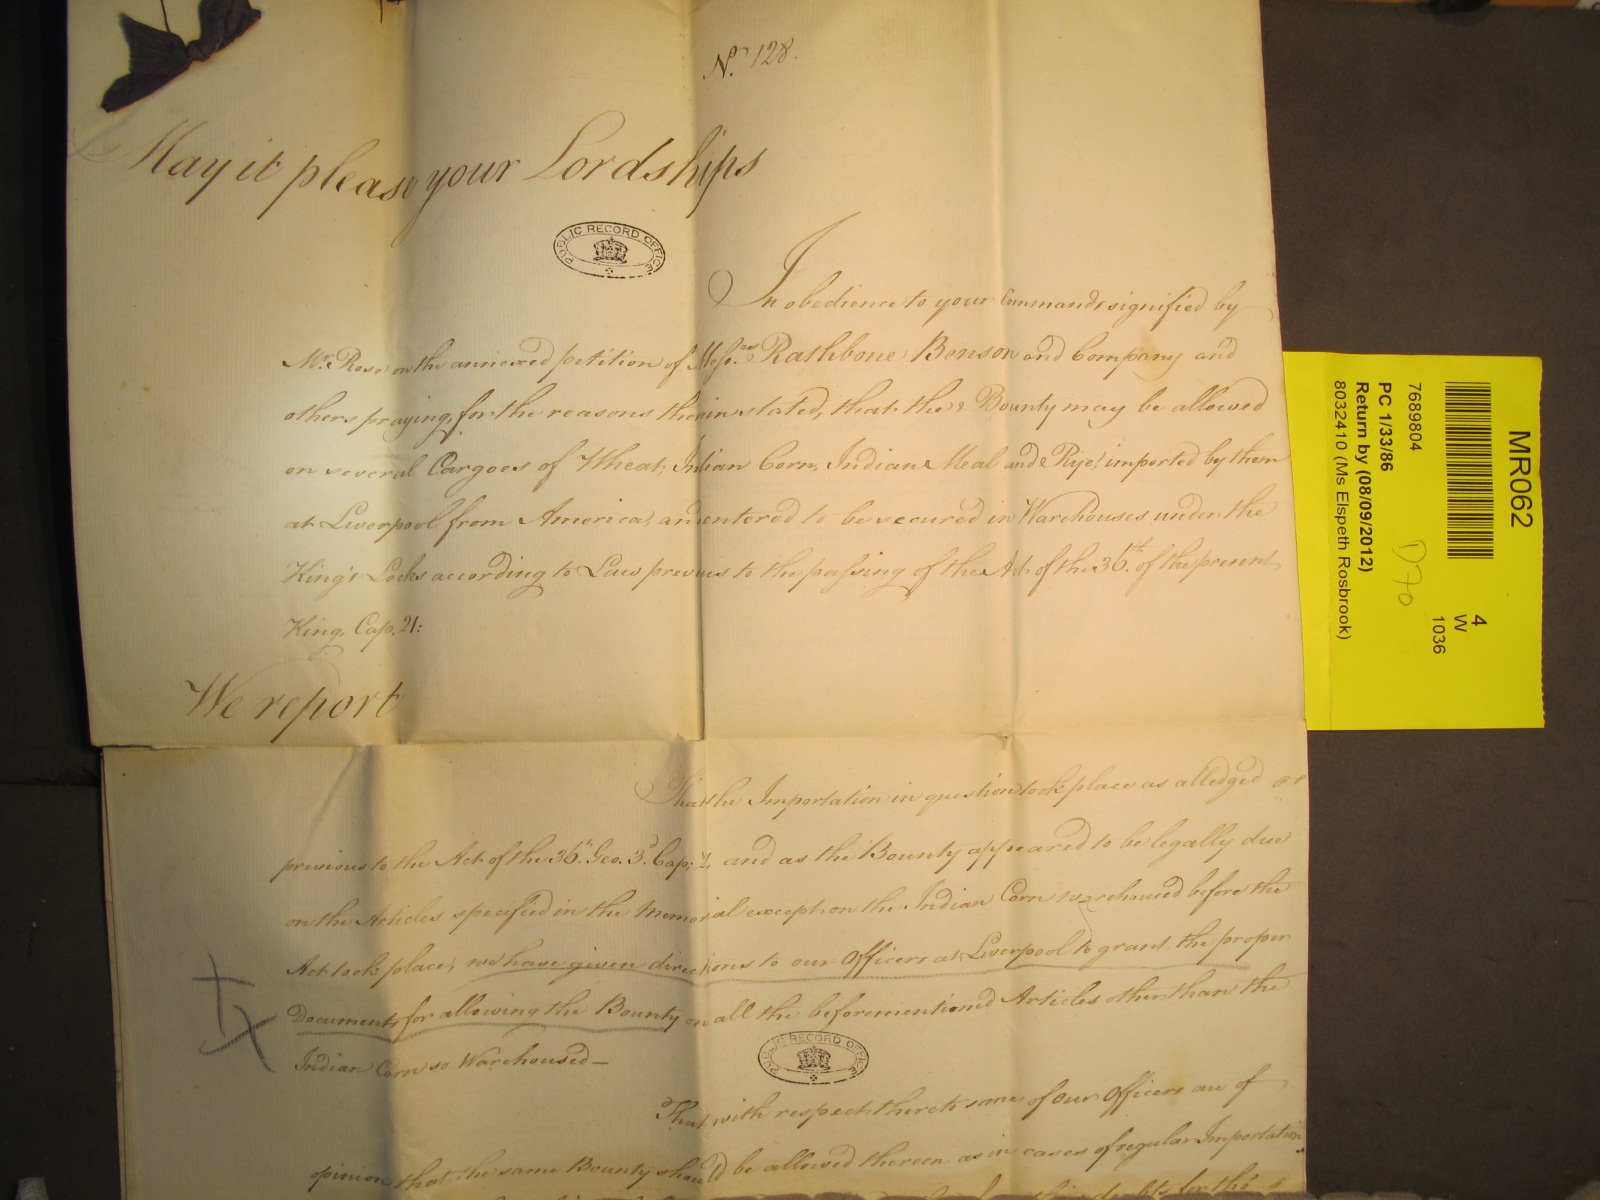 No. 128.
May it please your Lordships
PUBLIC RECORD OFFICE
In obedience to your Commands signified by
Mr. Rose on the annexed petition of Messrs. Rathbone Benson and Company and
others praying, for the reasons therein stated, that the Bounty may be allowed
on several Cargoes of Wheat, Indian Corn, Indian Meal and Rye, imported by them
at Liverpool from America, and entered to be secured in Warehouses under the
King's Locks according to Law previous to the passing of the Act of the 36th. of the present
King, Cap. 21:
We report
That the Importation in question took place as alledged
previous to the Act of the 36th. Geo. 3d. Cap. and as the Bounty appeared to be legally due
on the Articles specified in the Memorial except on the Indian Corn warehoused before the
Act took place, we have given directions to our Officers at Liverpool to grant the proper
Documents for allowing the Bounty on all the beforementioned Articles other than the
Indian Corn so Warehoused—
PUBLIC RECORD OFFICE
That with respect thereto some of our Officers are of
opinion that the same Bounty should be allowed thereon as in cases of regular Importation
doubts for the
MR062
4
W
1036
7689804
D70
PC 1/33/86
Return by (08/09/2012)
8032410 (Ms Elspeth Rosbrook)